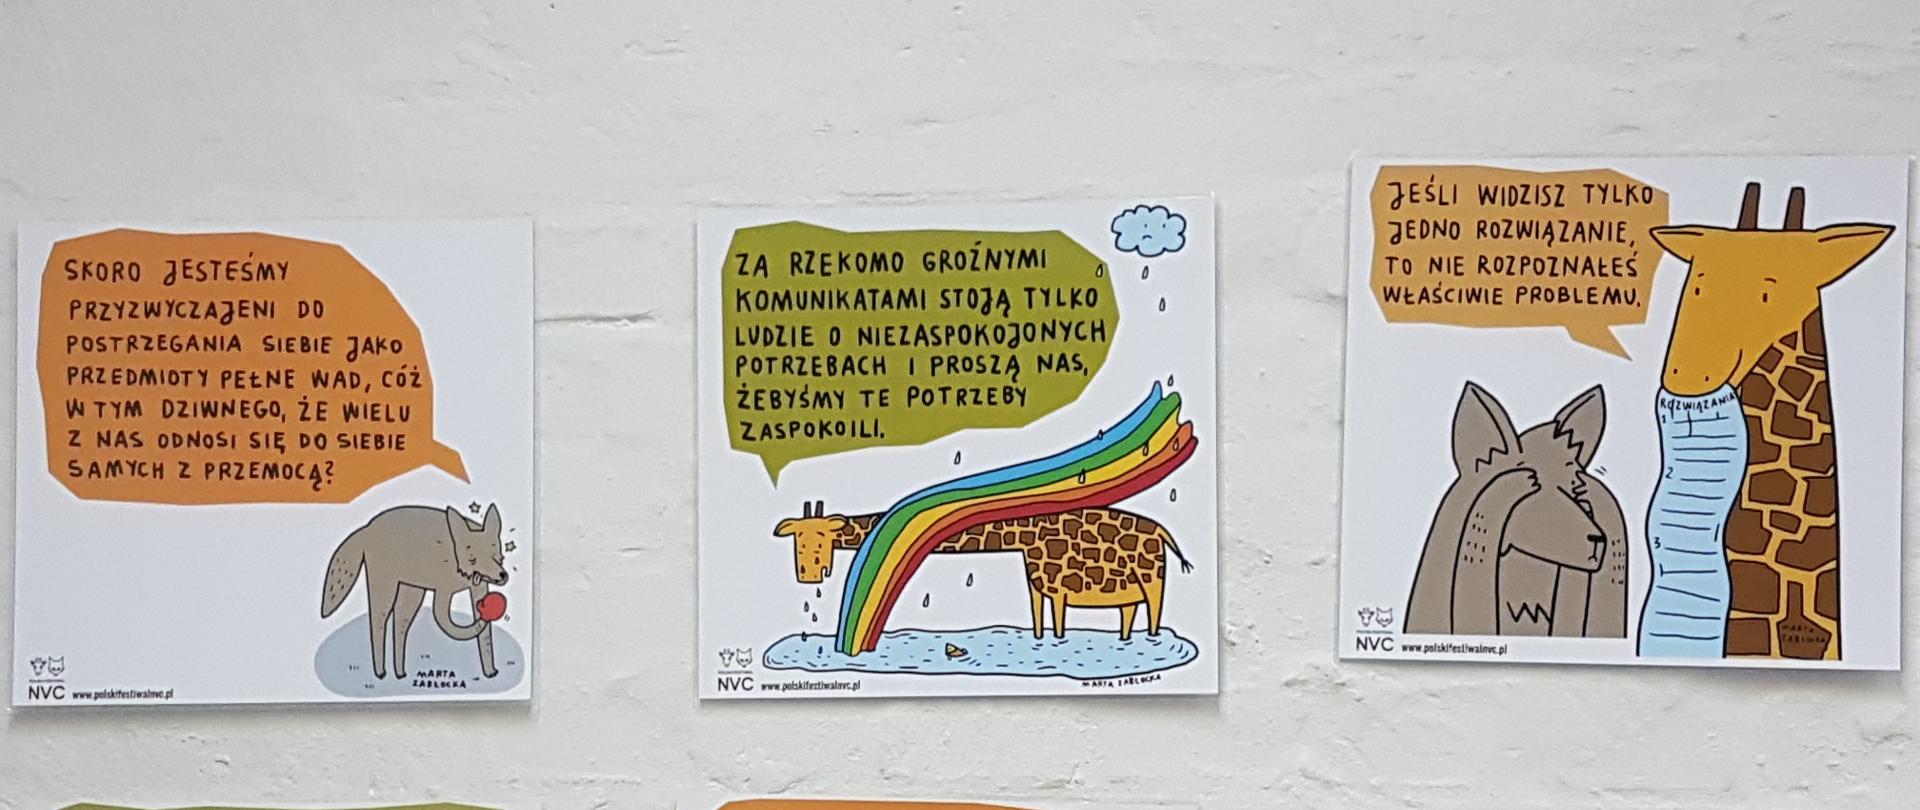 SKORO JESTEŚMY
PRZYZWYCZAJENI DO
POSTRZEGANIA SIEBIE JAKO
PRZEDMIOTY PEŁNE WAD, CÓŻ
W TYM DZIWNEGO, ŻE WIELU
Z NAS ODNOSI SIĘ DO SIEBIE
SAMYCH Z PRZEMOCĄ?
MARTA
ZABŁOCKA
NVC www.polskifestiwalnvc.pl
ZA RZEKOMO GROŹNYMI
KOMUNIKATAMI STOJĄ TYLKO
LUDZIE O NIEZASPOKOJONYCH
POTRZEBACH I PROSZĄ NAS,
ŻEBYŚMY TE POTRZEBY
ZASPOKOILI.
NVC www.polskifestiwalnvc.pl
MARTA ZABŁOCKA
JEŚLI WIDZISZ TYLKO
JEDNO ROZWIĄZANIE,
TO NIE ROZPOZNAŁEŚ
WŁAŚCIWIE PROBLEMU.
ROZWIĄZANIA
1
2
3
MARTA
ZABŁOCKA
NVC www.polskifestiwalnvc.pl